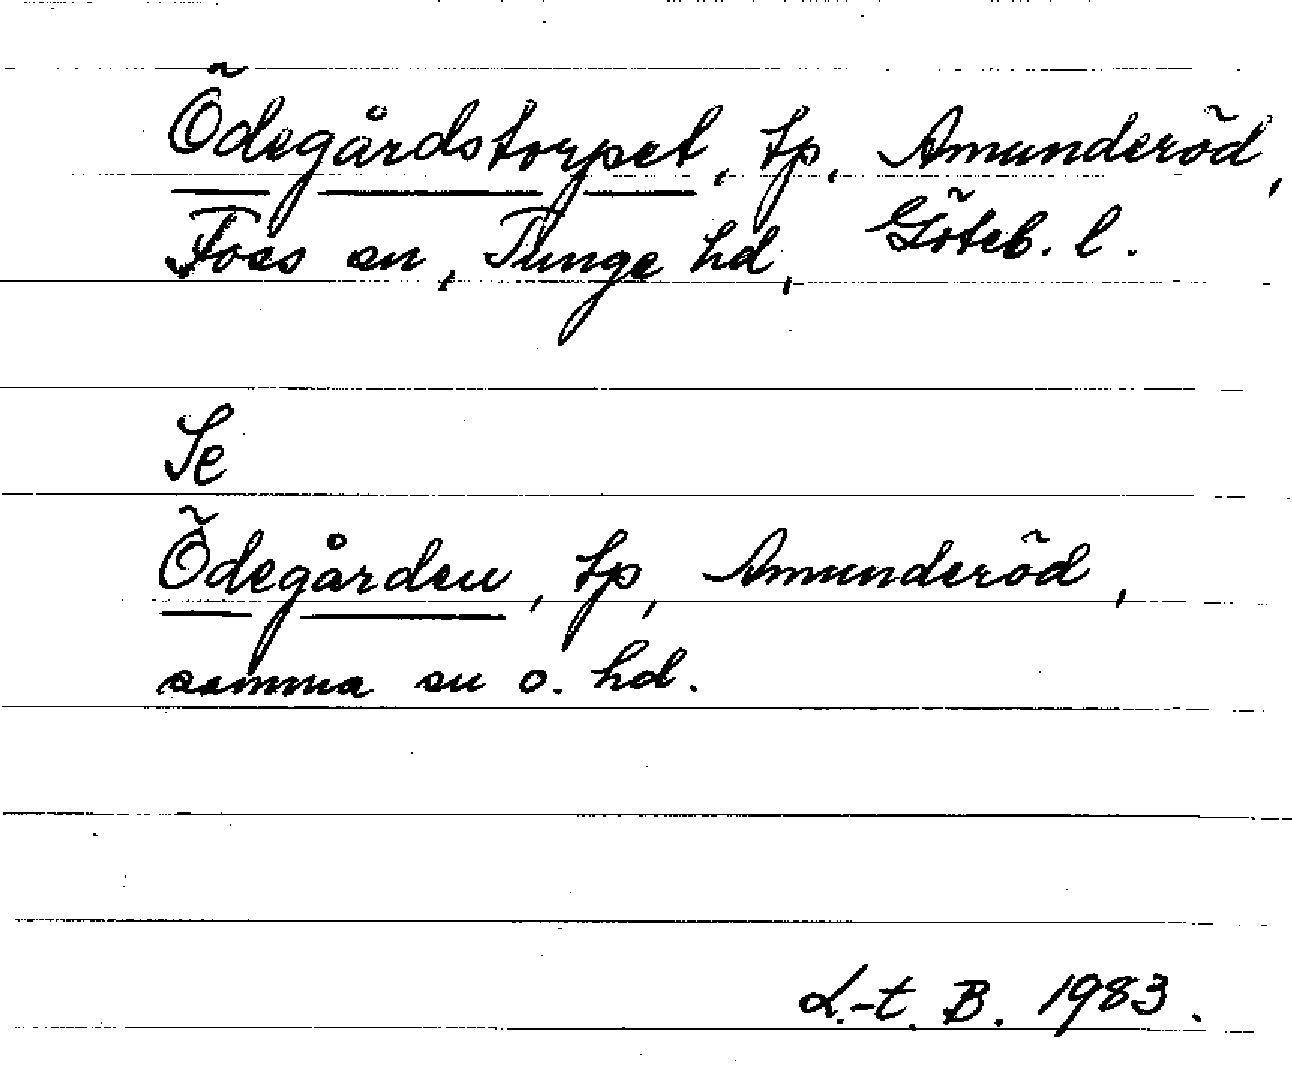 Ödegårdstorpet, tp, Amunderöd,
Foss sn, Tunge hd, Göteb. l.
Se
Ödegården, tp, Amunderöd,
samma sn o. hd.
L.-t. B. 1983.